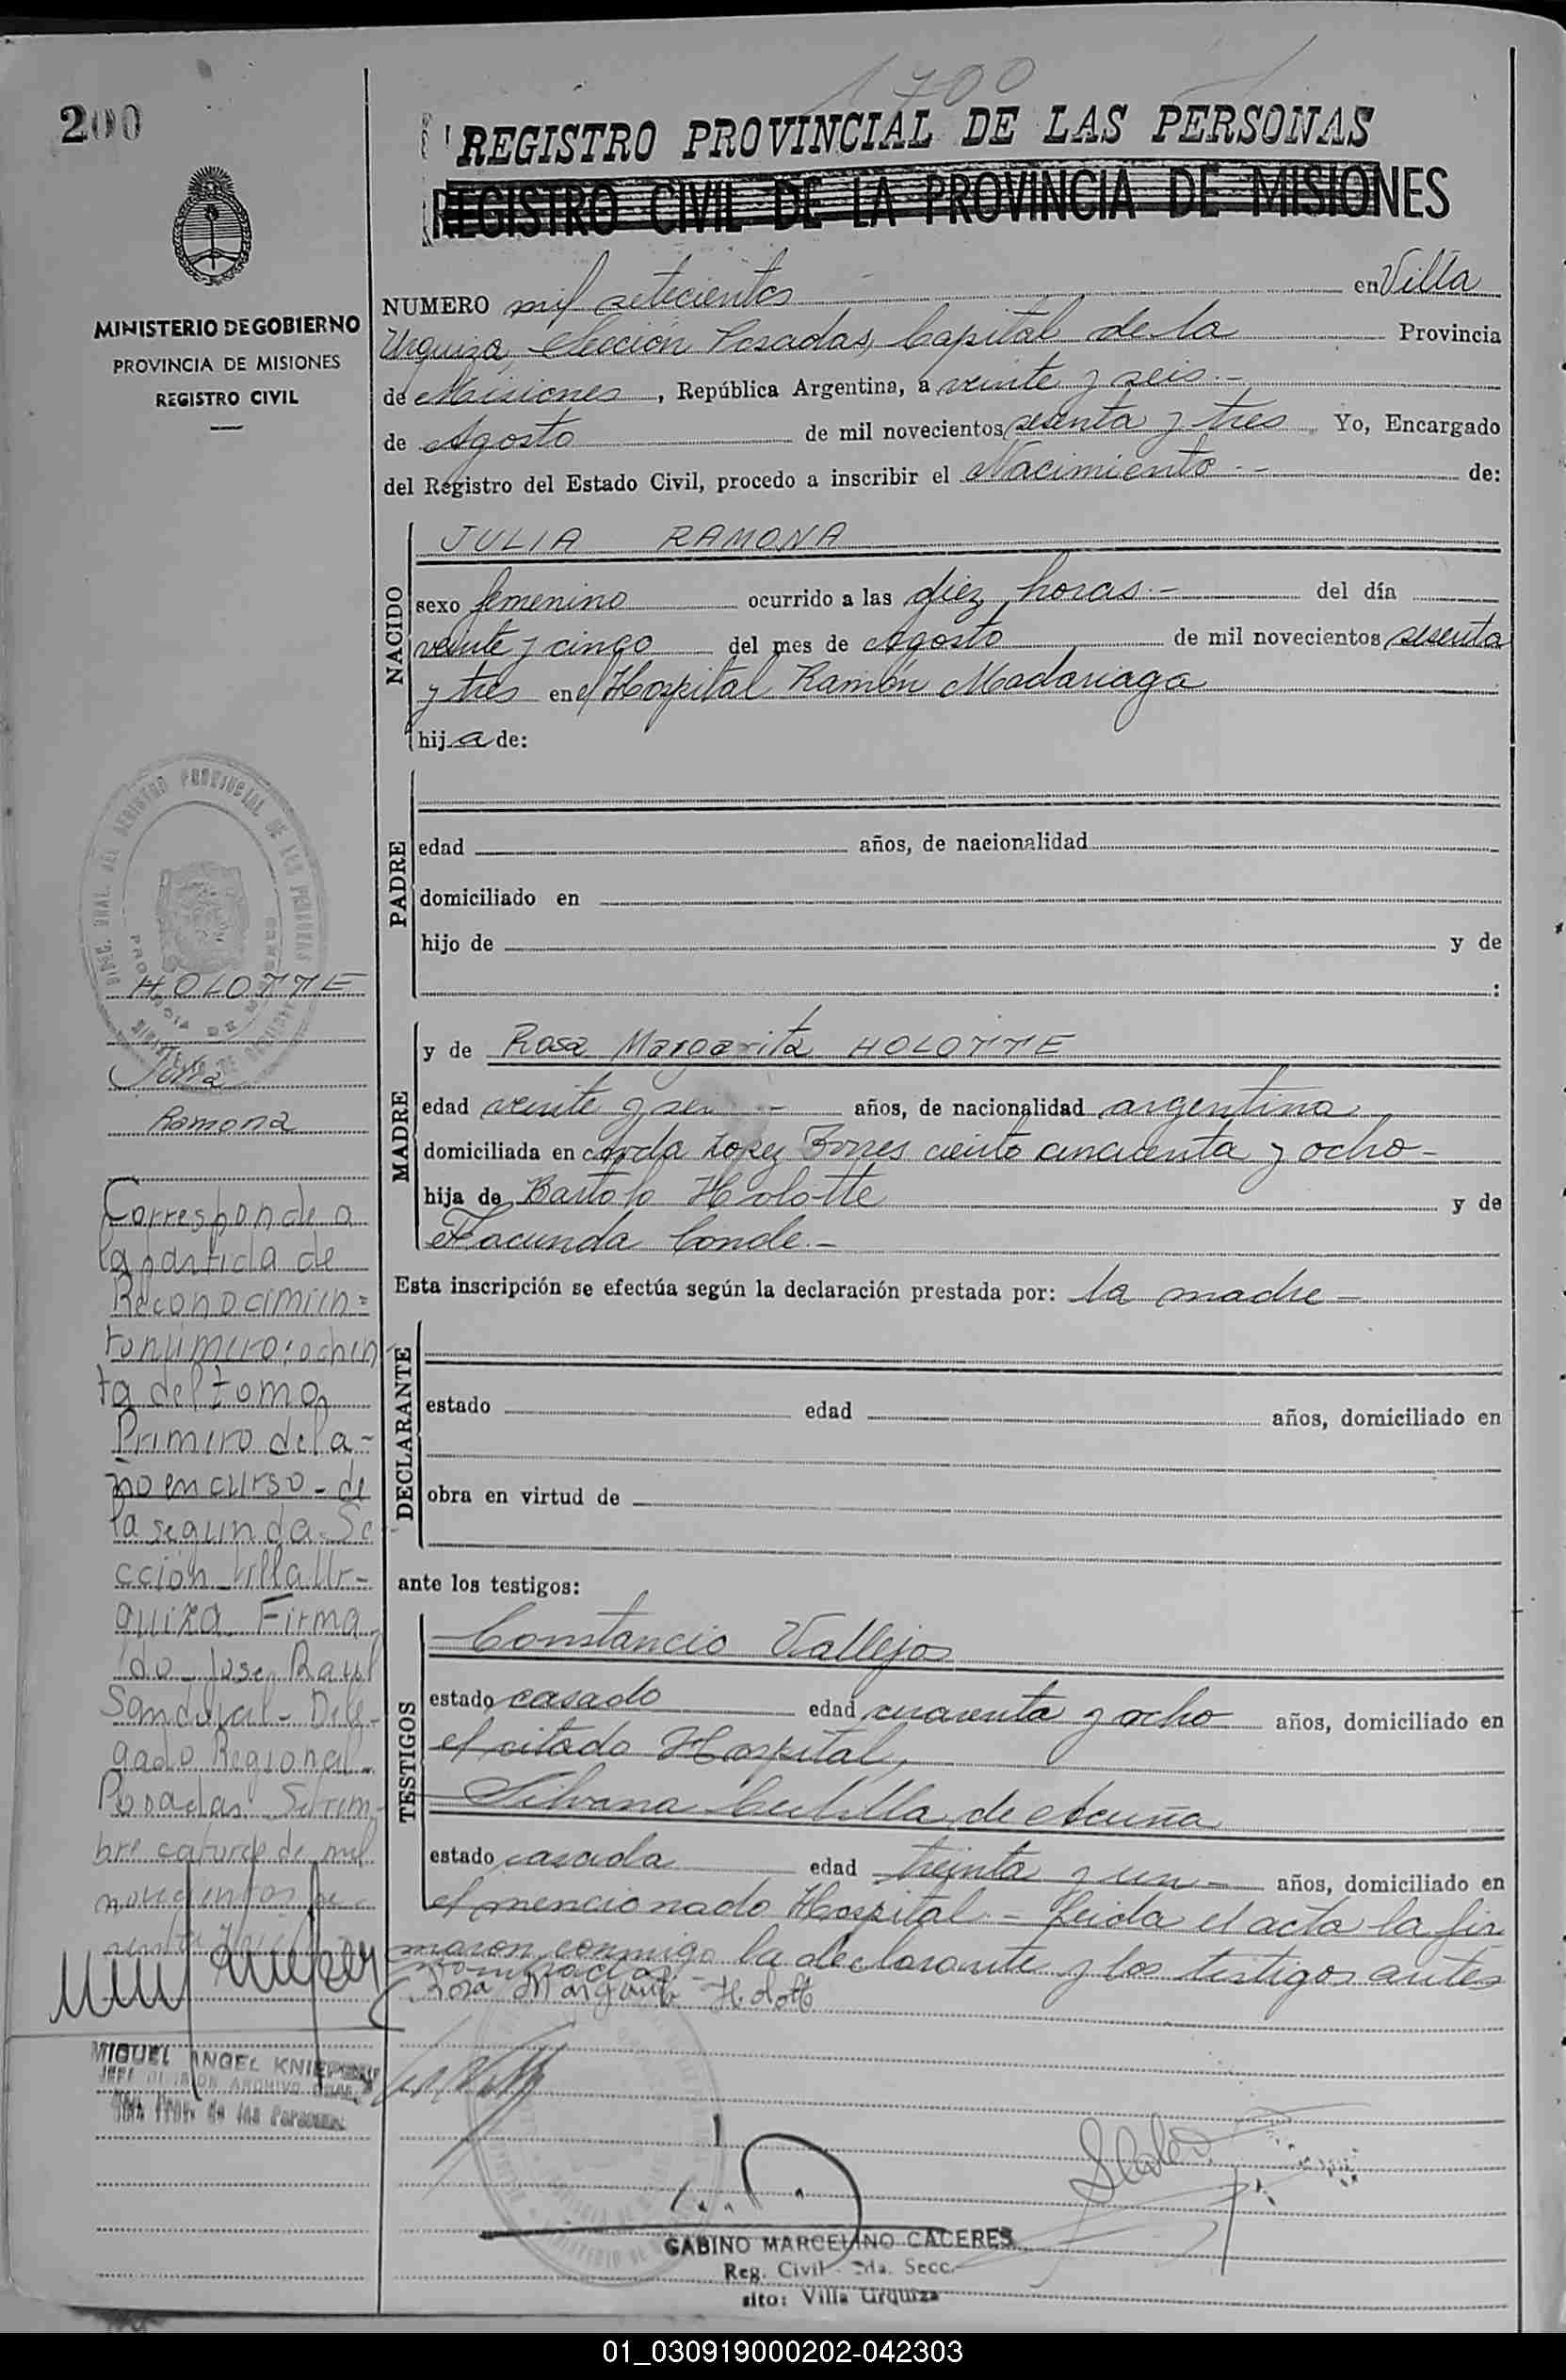 1700
200
REGISTRO PROVINCIAL DE LAS PERSONAS
REGISTRO CIVIL DE LA PROVINCIA DE MISIONES
MINISTERIO DE GOBIERNO
PROVINCIA DE MISIONES
REGISTRO CIVIL
NUMERO mil setecientos en Villa
Urquiza, Sección Posadas, Capital de la Provincia
de Misiones, República Argentina, a veinte y seis.-
de Agosto de mil novecientos sesenta y tres Yo, Encargado
del Registro del Estado Civil, procedo a inscribir el Nacimiento - - de:
NACIDO
JULIA RAMONA
sexo femenino ocurrido a las diez horas.- del día
veinte y cinco del mes de Agosto de mil novecientos sesenta
y tres en el Hospital Ramón Madariaga
hija de:
PADRE
edad años, de nacionalidad
domiciliado en
hijo de y de
:
MADRE
y de Rosa Margarita HOLOTTE
edad veinte y seis - años, de nacionalidad argentina
domiciliada en Lopez Torres ciento cincuenta y ocho -
hija de Bartolo Holotte y de
Facunda Conde.-
Esta inscripción se efectúa según la declaración prestada por: la madre -
DECLARANTE
estado edad años, domiciliado en
obra en virtud de
ante los testigos:
TESTIGOS
Constancio Vallejos
estado casado edad cuarenta y ocho años, domiciliado en
el citado Hospital,
Silvana de Acuña
estado casada edad treinta y un - años, domiciliado en
el mencionado Hospital - Leida el acta la fir
maron conmigo la declarante y los testigos antes
nombrados.-
Rosa Margarita Holotte
HOLOTTE
Julia
Ramona
Corresponde a
la partida de
Reconocimien=
to número: ochen
ta del tomo
Primero del a-
ño en curso - de
la segunda Se
cción Villa Ur-
quiza. Firma
do Jose Raul
Sandoval - Dele-
gado Regional -
Posadas Setiem-
bre catorce de mil
novecientos se
MIGUEL ANGEL KNIEPER
JEFE DIVISION ARCHIVO
Reg. Prov. de las Personas
GABINO MARCELINO CACERES
Reg. Civil 2da. Secc.
sito: Villa Urquiza
01_030919000202-042303